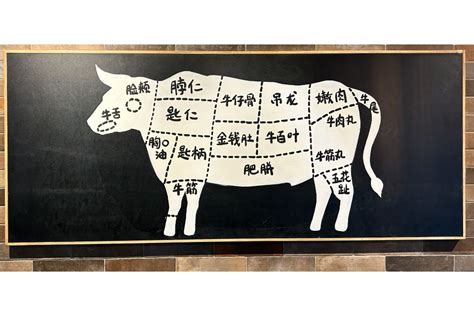 脸颊
牛舌
脖仁
匙仁
胸口油
匙柄
牛筋
牛仔骨
吊龙
金钱肚
牛百叶
肥胼
嫩肉
牛肉丸
牛筋丸
五花趾
牛尾